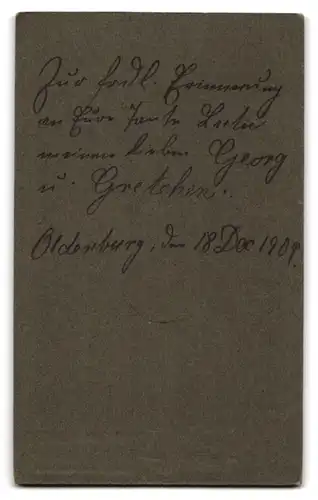 Zur frdl. Erinnerung
an Eure Tante
meinen lieben Georg
u. Gretchen.
Oldenburg, den 18 Dec 1909.